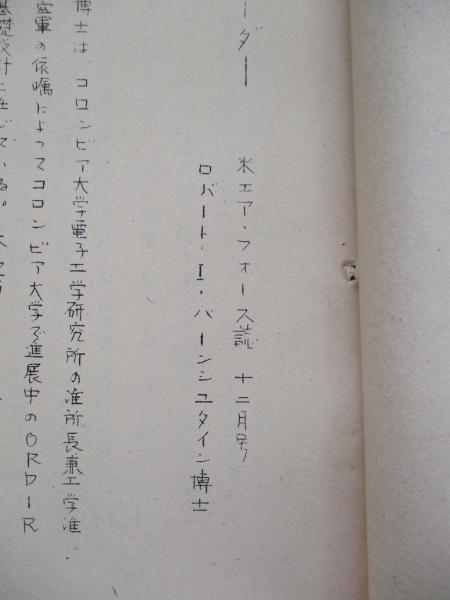 ーダー
米エア・フォース誌 十二月号
ロバート・I・バーンシュタイン博士
博士は、コロンビア大学電子工学研究所の准所長兼工学准
空軍の依嘱によってコロンビア大学で進展中のORDIR
基礎設計に